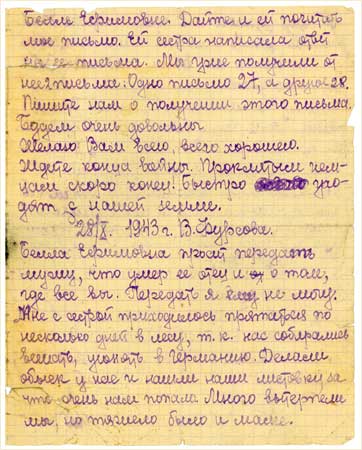 Белле Ефимовне. Дайте и ей почитать
мое письмо. Ей сестра написала ответ
на ее письма. Мы уже получили от
нее 2 письма: Одно письмо 27, а другое 28.
Пишите нам о получении этого письма
Будем очень довольны
Желаю Вам всего, всего хорошего.
Ждите конца войны. Проклятым нем-
цам скоро конец. Быстро ухо-
дят с нашей земли.
28/X. 1943 г. В. Фурсова.
Белла Ефимовна просит передать
мужу, что умер ее отец и о том,
где все вы. Передать я ему не могу.
Мне с сестрой приходилось прятаться по
несколько дней в лесу, т.к. нас собирались
вешать, угонять в Германию. Делали
обыск у нас и нашли наши листовки за
что очень нам попало Много вытерпели
мы, но тяжело было и маме.